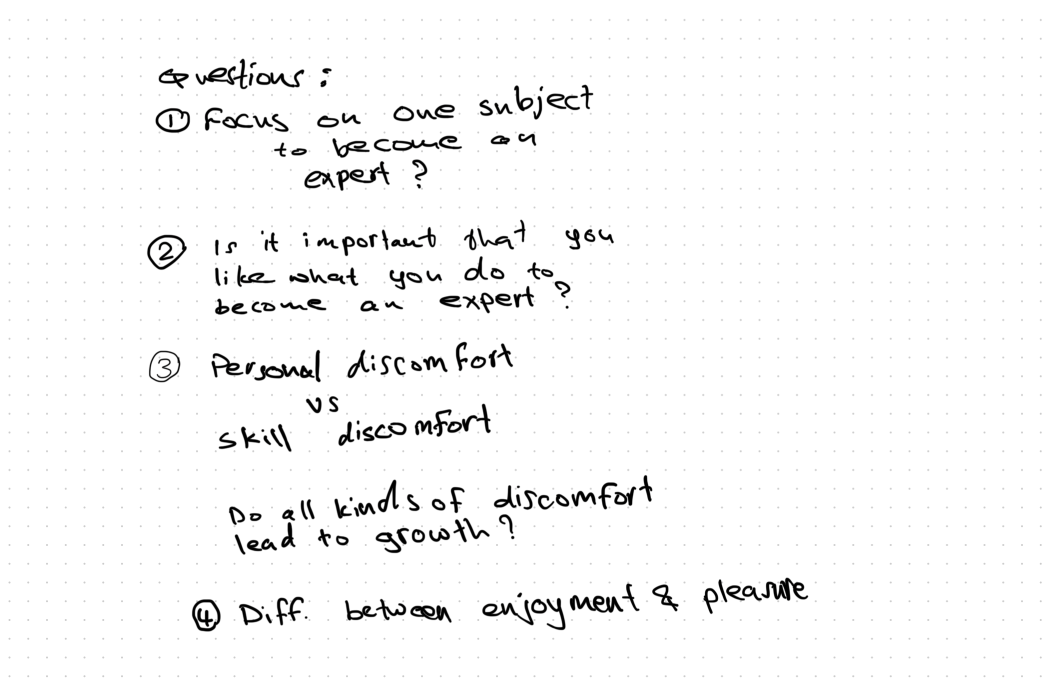 Questions:
① Focus on one subject
to become an
expert?
② Is it important that you
like what you do to
become an expert?
③ Personal discomfort
vs
skill discomfort
Do all kinds of discomfort
lead to growth?
④ Diff. between enjoyment & pleasure